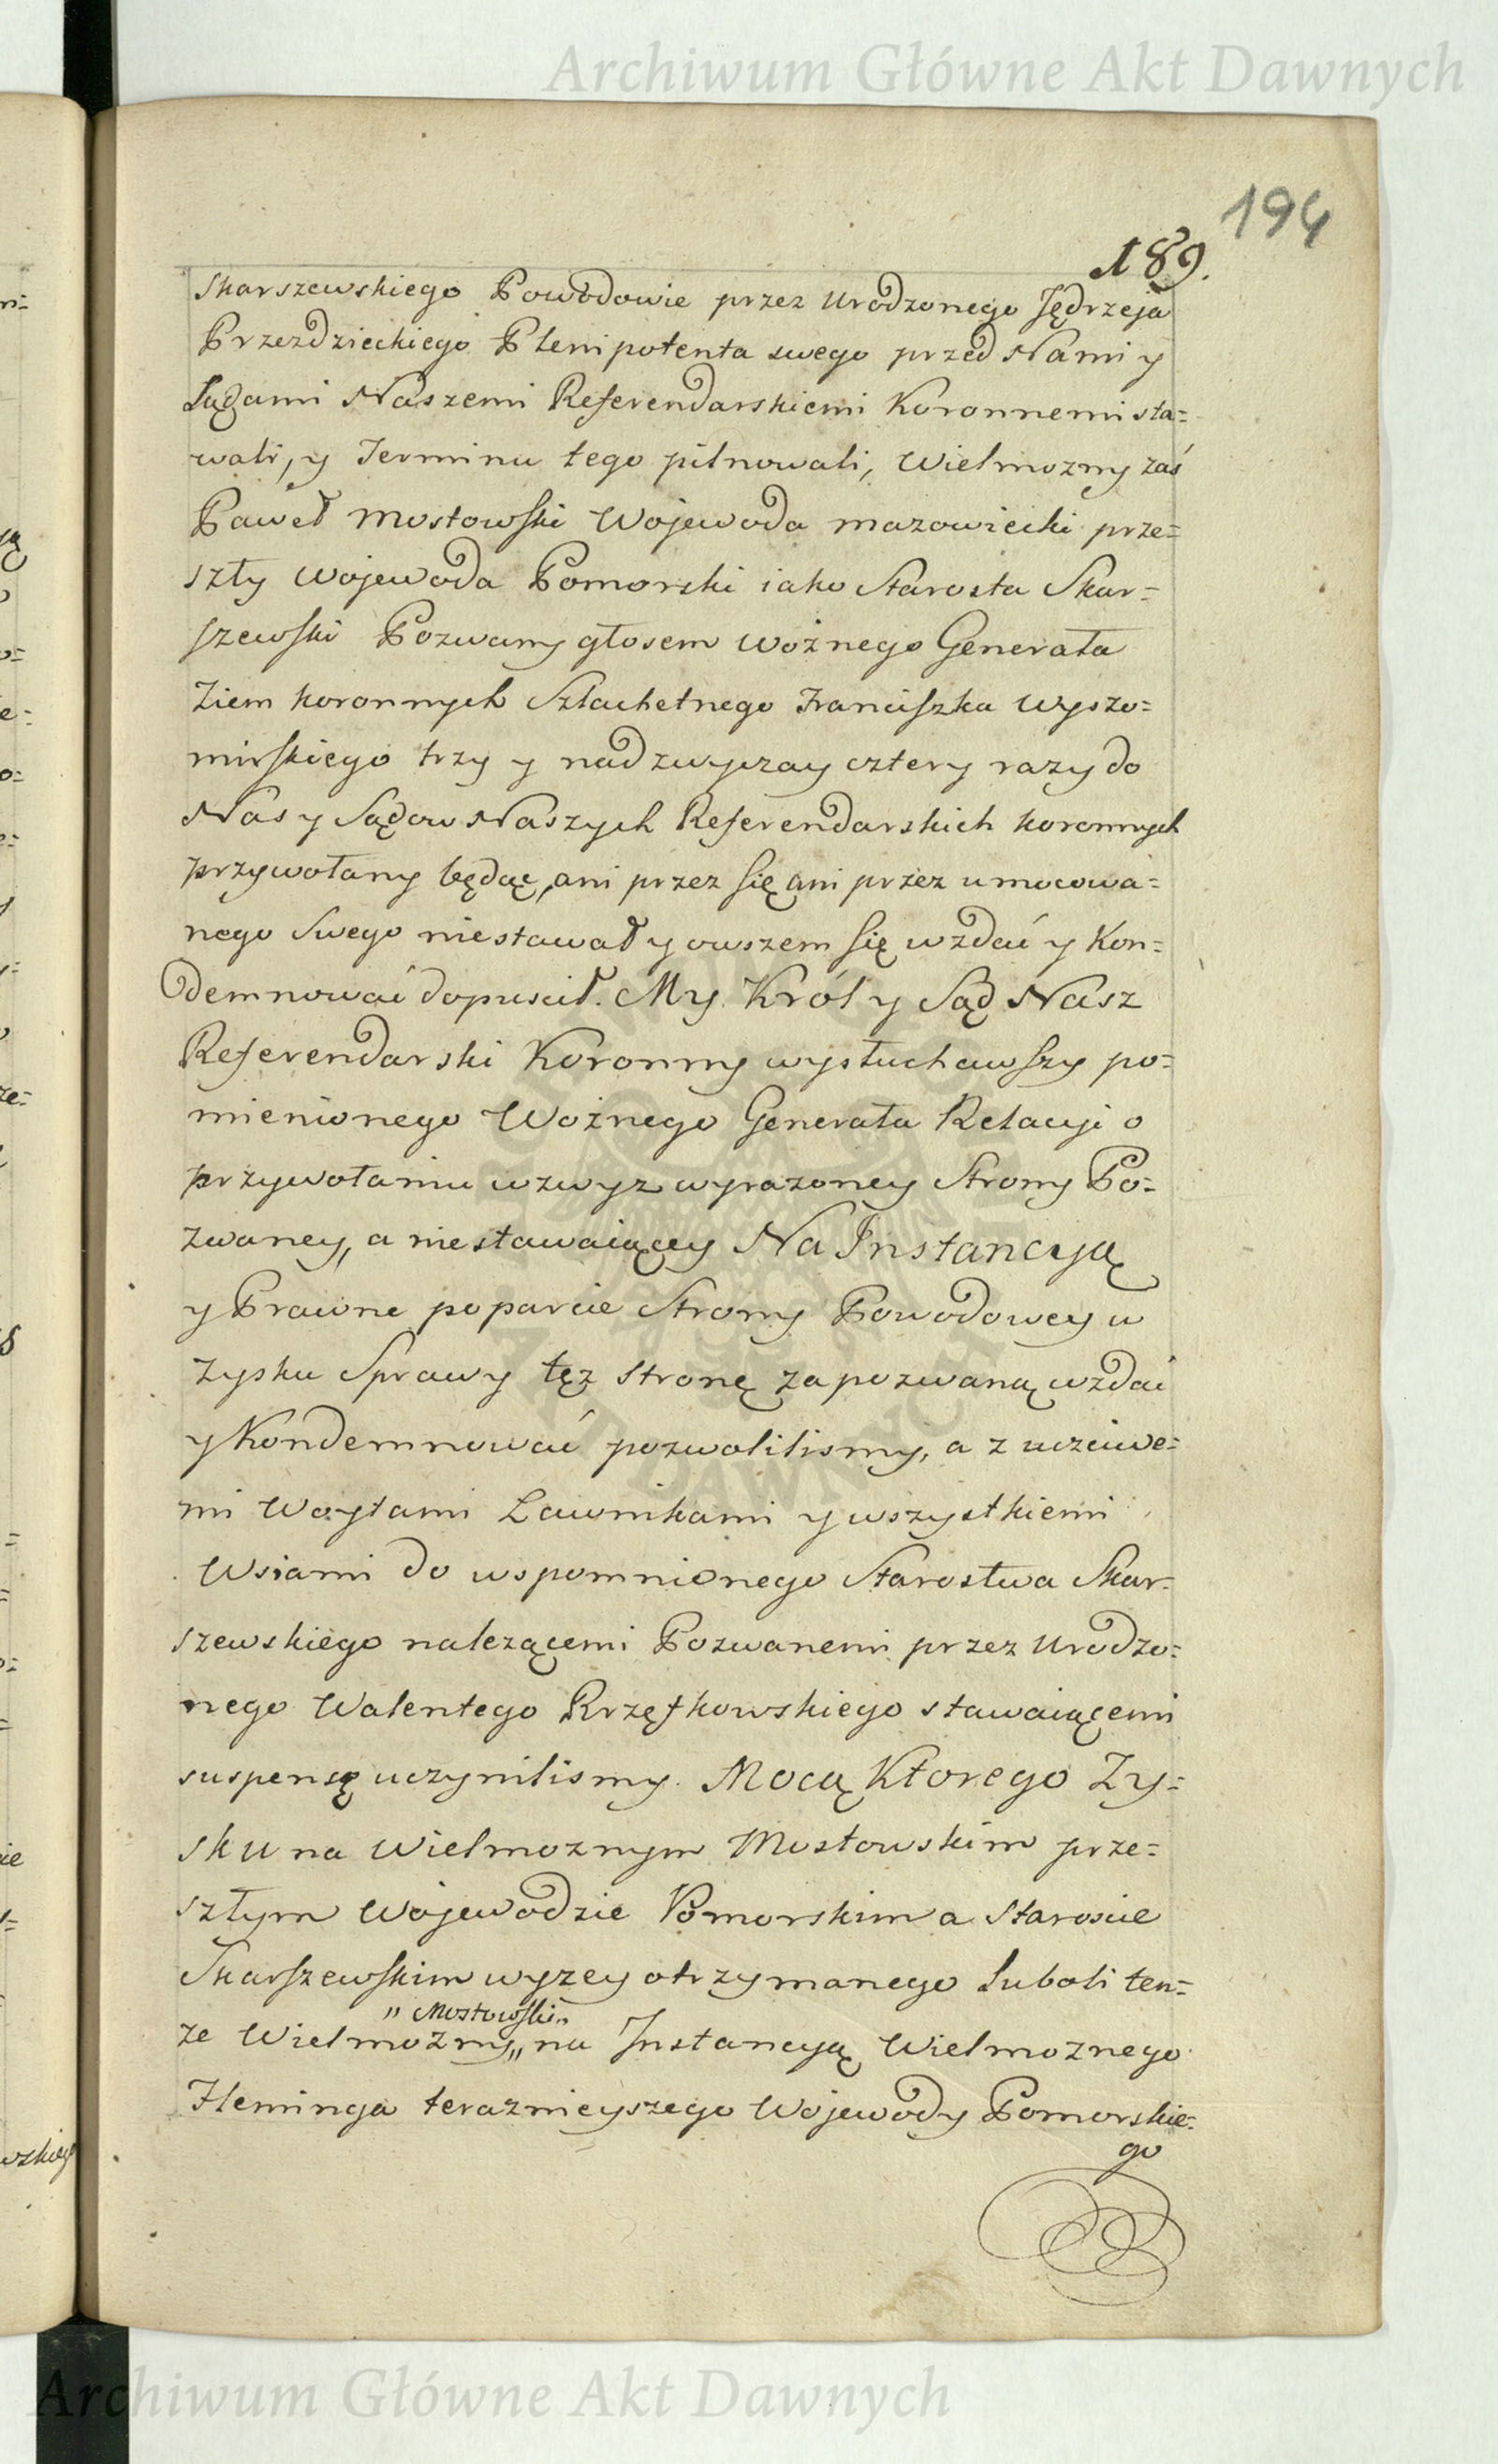 Archiwum Główne Akt Dawnych
194
189.
Skarszewskiego Powodowie przez Urodzonego Jędrzeja
Przezdzieckiego Plenipotenta swego przed Nami y
Sądami Naszemi Referendarskiemi Koronnemi sta=
wali, y Terminu tego pilnowali, Wielmozny zaś
Paweł Mostowski Wojewoda mazowiecki prze=
szły Wojewoda Pomorski iako Starosta Skar=
szewski Pozwany głosem Woźnego Generała
Ziem koronnych Szlachetnego Franciszka Wyszo=
mirskiego trzy y nadzwyczay cztery razy do
Nas y Sądow Naszych Referendarskich koronnych
przywołany będąc, ani przez się ani przez umocowa=
nego Swego niestawał y owszem się wzdać y Kon=
demnować dopuscił. My Król y Sąd Nasz
Referendarski Koronny wysłuchawszy po=
mienionego Woźnego Generała Relacyi o
przywołaniu wzwyz wyrazoney Strony Po=
zwaney, a niestawaiącey Na Instancyą
y Prawne poparcie Strony Powodowey w
zysku Sprawy tęz Stronę zapozwaną wzdać
y Kondemnować pozwolilismy, a z uczciwe=
mi Woytami Ławnikami y wszystkiemi
Wsiami do wspomnionego Starostwa Skar=
szewskiego nalezącemi Pozwanemi przez Urodzo=
nego Walentego Rzętkowskiego stawaiącemi
suspensę uczynilismy. Mocą Ktorego Zy=
sku na Wielmoznym Mostowskim prze=
szłym Wojewodzie Pomorskim a Staroscie
Skarszewskim wyzey otrzymanego luboli ten=
„ Mostowski „
ze Wielmozny „ na Instancyą Wielmoznego
Fleminga teraznieyszego Wojewody Pomorskie=
go
Archiwum Główne Akt Dawnych